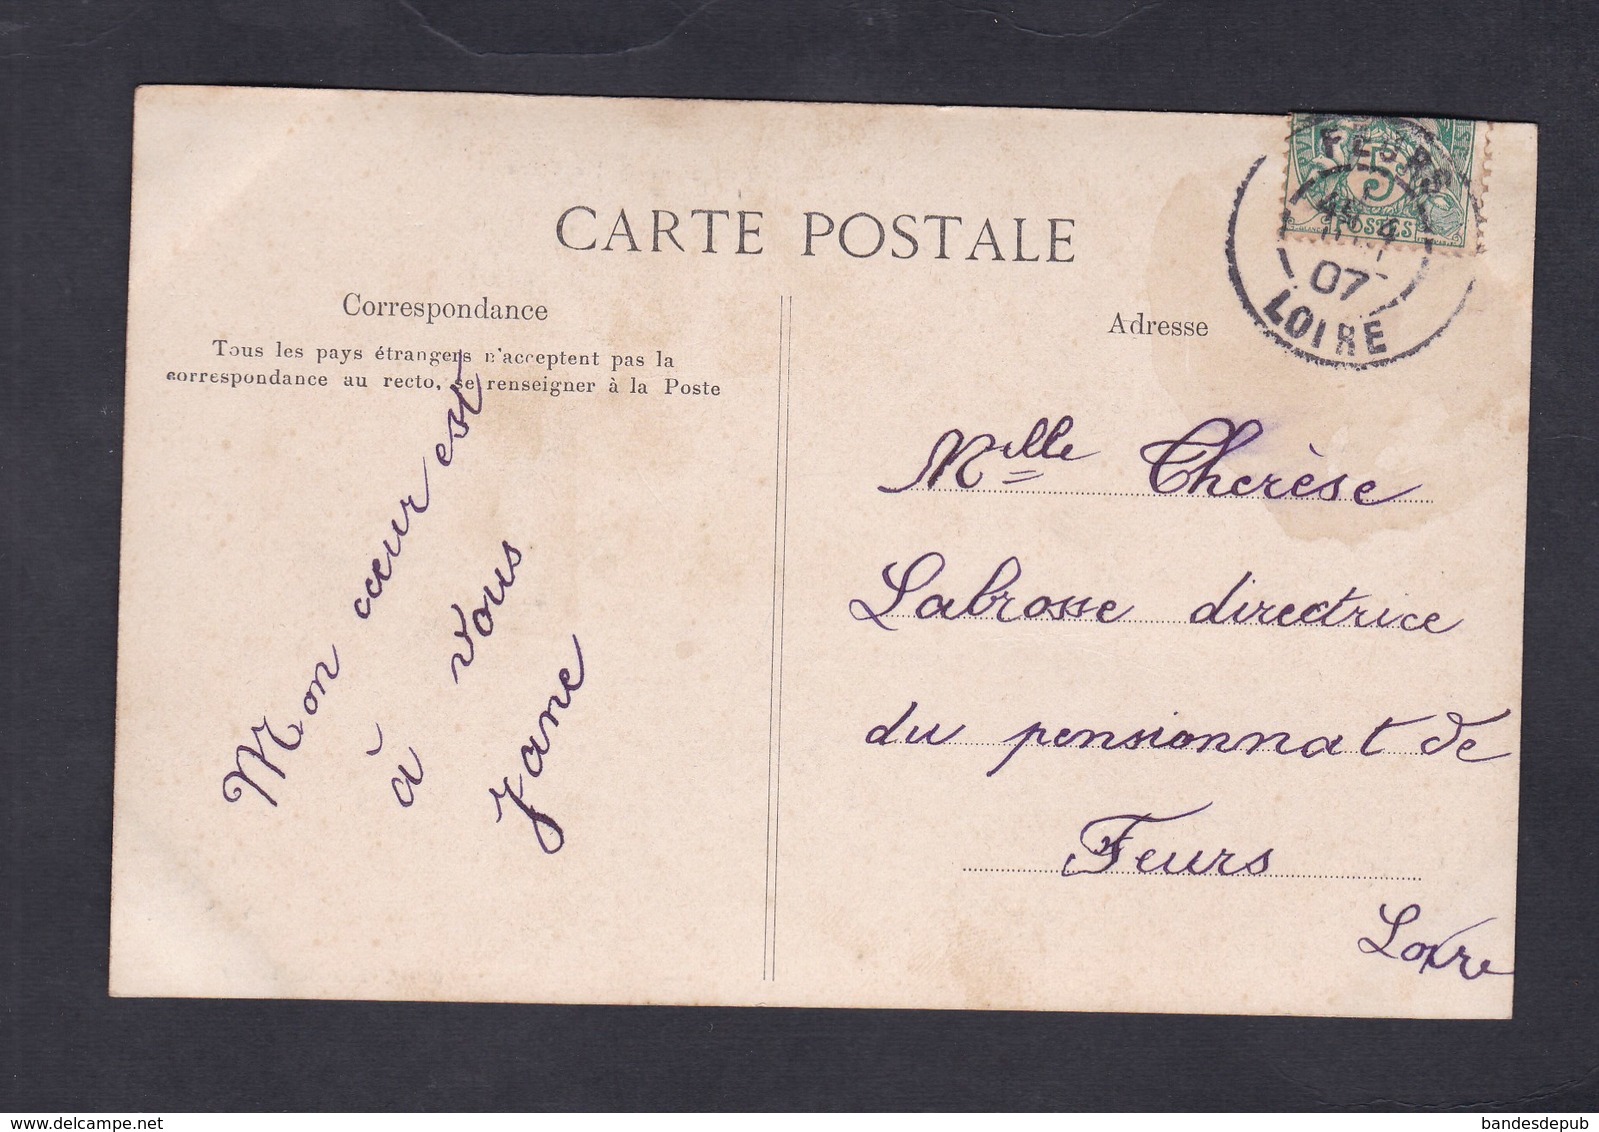 CARTE POSTALE
Correspondance
Tous les pays étrangers n'acceptent pas la
correspondance au recto, se renseigner à la Poste
Mon cœur est
à vous
Jane
Adresse
FEURS
5
POSTES
07
LOIRE
Melle Therèse
Labrosse directrice
du pensionnat de
Feurs
Loire
www.delcampe.net
bandesdepub